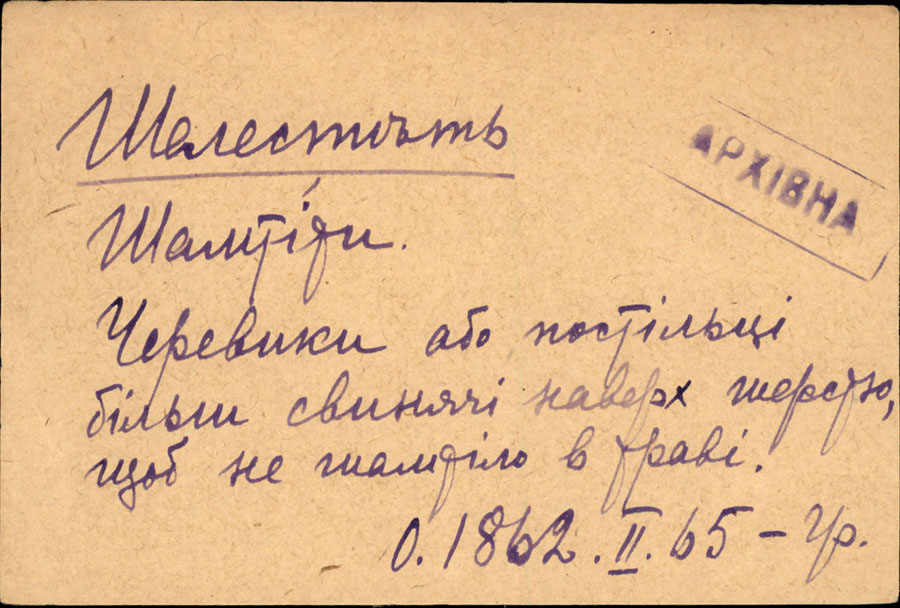 Шелестѣть
АРХІВНА
Шамтіти.
Черевики або постільці
більш свинячі наверх шерстю,
щоб не шамтіло в траві.
О. 1862. II. 65 – Чр.